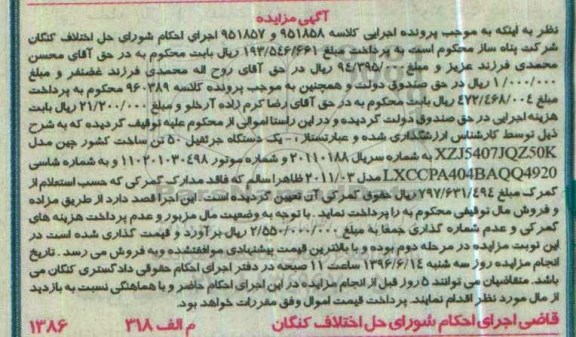 آگهی مزایده
نظر به اینکه به موجب پرونده اجرایی کلاسه ۹۵۱۸۵۸ و ۹۵۱۸۵۷ اجرای احکام شورای حل اختلاف کنگان
شرکت پناه ساز محکوم است به پرداخت مبلغ ۱۹۳/۵۴۶/۶۶۱ ریال بابت محکوم به در حق آقای محسن
محمدی فرزند عزیز و مبلغ ۹۴/۳۹۵/۰۰۰ ریال در حق آقای روح اله محمدی فرزند غضنفر و مبلغ
۱/۰۰۰/۰۰۰ ریال در حق صندوق دولت و همچنین به موجب پرونده کلاسه ۹۶۰۳۸۹ محکوم به پرداخت
مبلغ ۴۷۲/۴۶۸/۰۰۴ ریال بابت محکوم به در حق آقای رضا کرم زاده آرخلو و مبلغ ۲۱/۲۰۰/۰۰۰ ریال بابت
هزینه اجرایی در حق صندوق دولت گردیده و در این راستا اموالی از محکوم علیه توقیف گردیده که به شرح
ذیل توسط کارشناس ارزشگذاری شده و عبارتستاز : - یک دستگاه جرثقیل ۵۰ تن ساخت کشور چین مدل
XZJ5407JQZ50K به شماره سریال ۲۰۱۱۰۱۸۸ و شماره موتور ۱۱۰۲۰۱۰۳۰۴۹۸ و به شماره شاسی
LXCCPA404BAQQ4920 مدل ۲۰۱۱/۰۳ ظاهرا سالم که فاقد مدارک گمرکی که حسب استعلام از
گمرک مبلغ ۷۹۷/۶۳۱/۴۹۴ ریال حقوق گمرکی آن تعیین گردیده است. این اجرا قصد دارد از طریق مزایده
و فروش مال توقیفی محکوم به را پرداخت نماید . با توجه به وضعیت مال مزبور و عدم پرداخت هزینه های
گمرکی و عدم شماره گذاری جمعا به مبلغ ۲/۵۵۰/۰۰۰/۰۰۰ ریال برآورد و قیمت گذاری شده است در
این نوبت مزایده در مرحله دوم بوده و با بالاترین قیمت پیشنهادی موافقتشده و به فروش می رسد . تاریخ
انجام مزایده روز سه شنبه ۱۳۹۶/۶/۱۴ ساعت ۱۱ صبحه در دفتر اجرای احکام حقوقی دادگستری کنگان می
باشد. متقاضیان می توانند ۵ روز قبل از انجام مزایده در این اجرای احکام حاضر و با هماهنگی نسبت به بازدید
از مال مورد نظر اقدام نمایند. پرداخت قیمت اموال وفق مقررات خواهد بود.
قاضی اجرای احکام شورای حل اختلاف کنگان م الف ۳۱۸ ۱۳۸۶